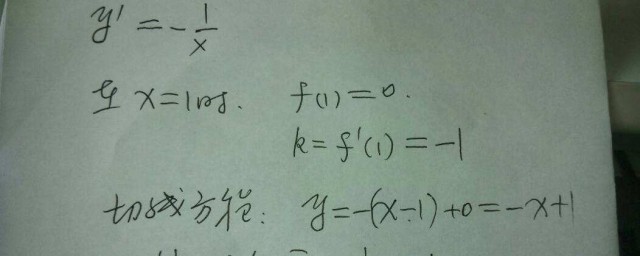 y' = -1/x
在 x=1时. f(1)=0.
k=f'(1)=-1
切线方程: y=-(x-1)+0=-x+1